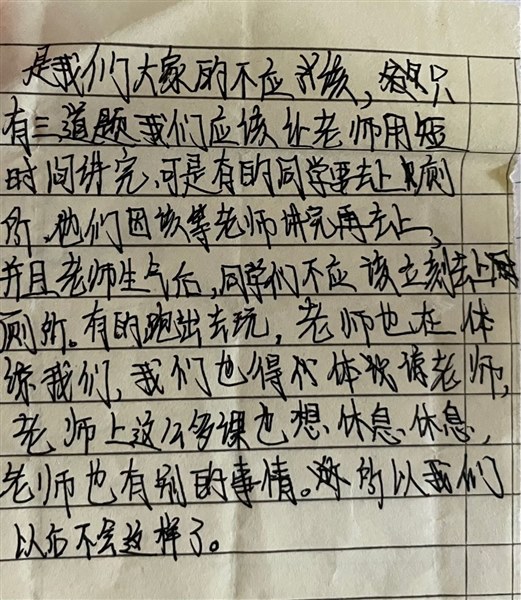 是我们大家的不应该，只
有三道题我们应该让老师用短
时间讲完，可是有的同学要去上厕
所，他们因该等老师讲完再去上，
并且老师生气后，同学们不应该立刻去上
厕所。有的跑出去玩，老师也在体
谅我们，我们也得体谅老师，
老师上这么多课也想休息休息，
老师也有别的事情。所以我们
以后不会这样了。